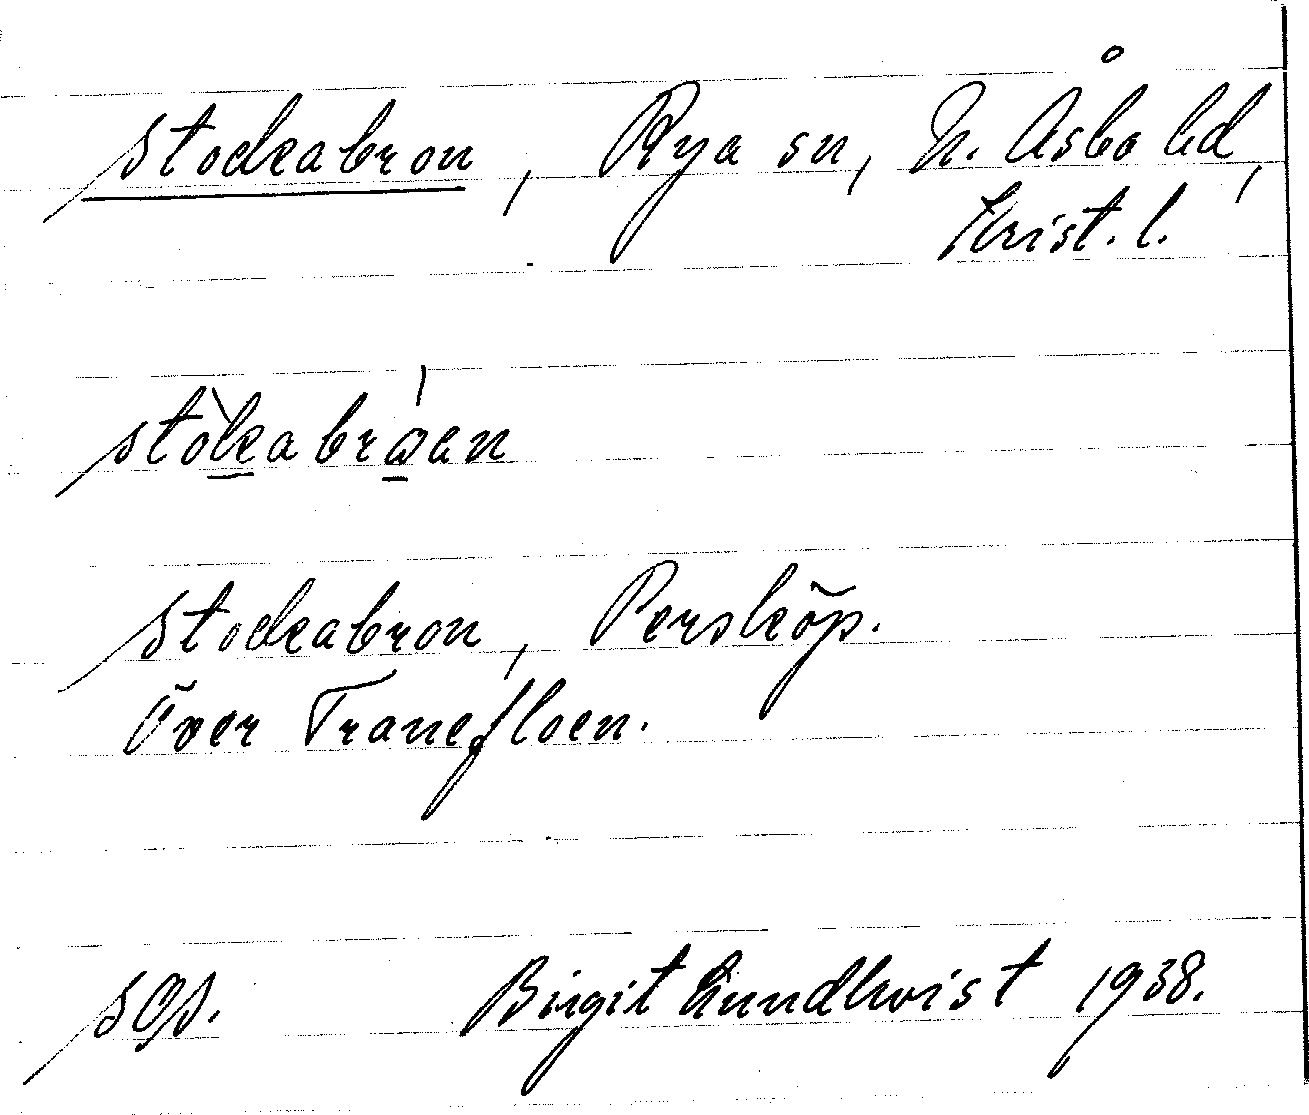 Stockabron, Rya sn, N. Åsbo hd,
Krist. l.
stòkabrán
Stockabron, Perstköp.
Över Tranefloen.
sgs. Birgit Lundkvist 1938.